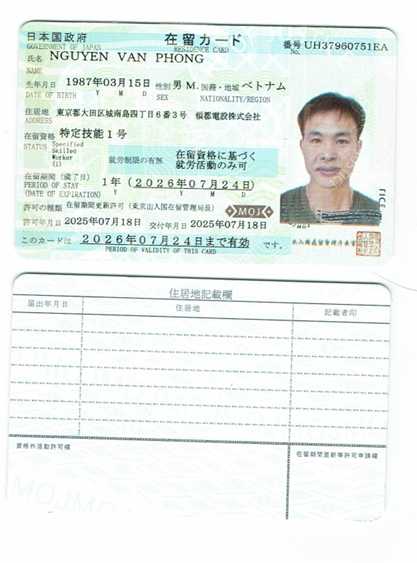 日本国政府 在留カード 番号 UH37960751EA
GOVERNMENT OF JAPAN RESIDENCE CARD No.
氏名 NGUYEN VAN PHONG
NAME
生年月日 1987年03月15日 性別 男 M. 国籍・地域 ベトナム
DATE OF BIRTH Y M D SEX NATIONALITY/REGION
住居地 東京都大田区城南島四丁目6番3号 福都電設株式会社
ADDRESS
在留資格 特定技能1号
STATUS Specified
Skilled
Worker
(i)
就労制限の有無 在留資格に基づく
就労活動のみ可
在留期間(満了日) 1年(2026年07月24日)
PERIOD OF STAY
(DATE OF EXPIRATION) Y M D
許可の種類 在留期間更新許可(東京出入国在留管理局長)
MOJ
許可年月日 2025年07月18日 交付年月日 2025年07月18日
このカードは 2026年07月24日まで有効 です。
PERIOD OF VALIDITY OF THIS CARD
住居地記載欄
届出年月日 住居地 記載者印
資格外活動許可欄 在留期間更新等許可申請欄
MOJMO